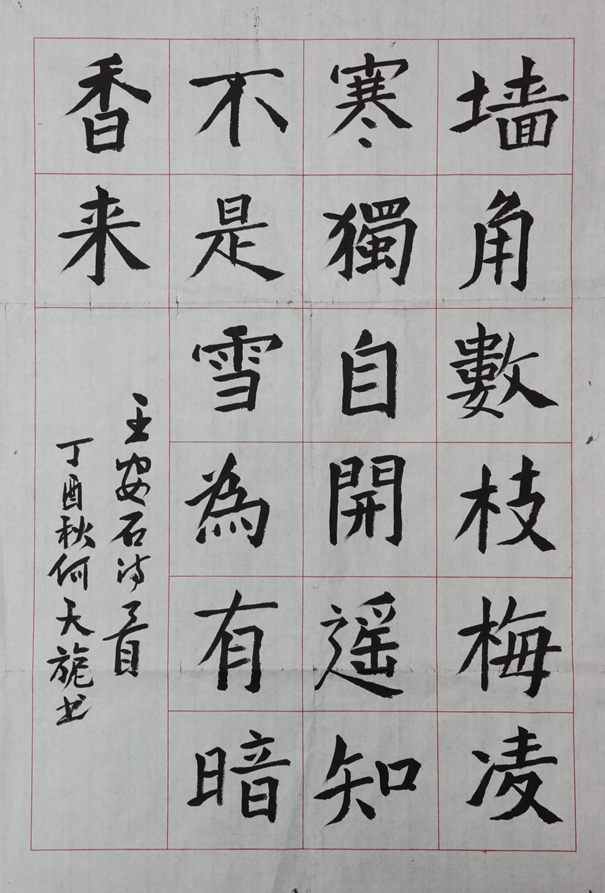 墙角數枝梅凌
寒獨自開遥知
不是雪為有暗
香来
王安石诗一首
丁酉秋何天旎书